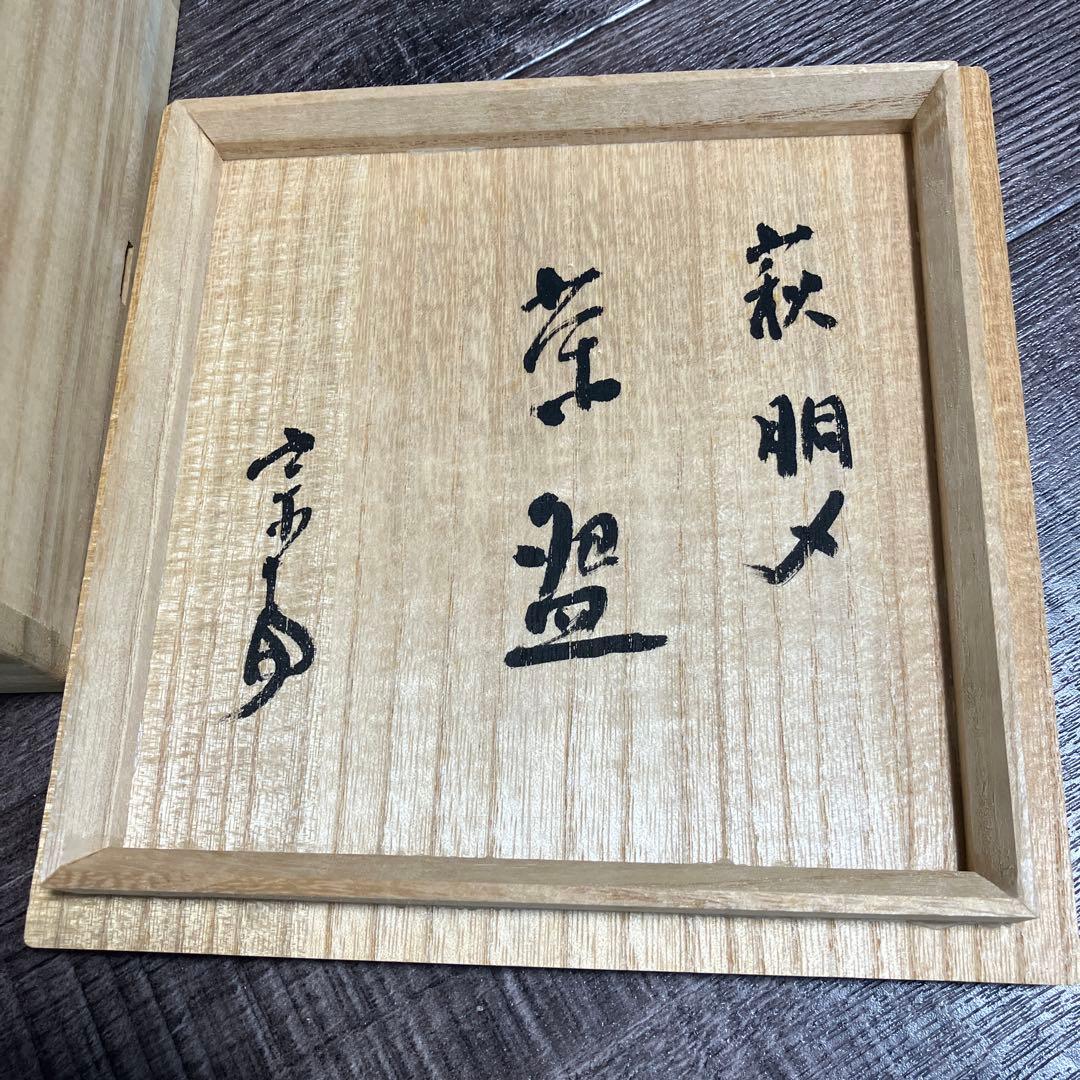 萩 胴〆
茶盌
宗